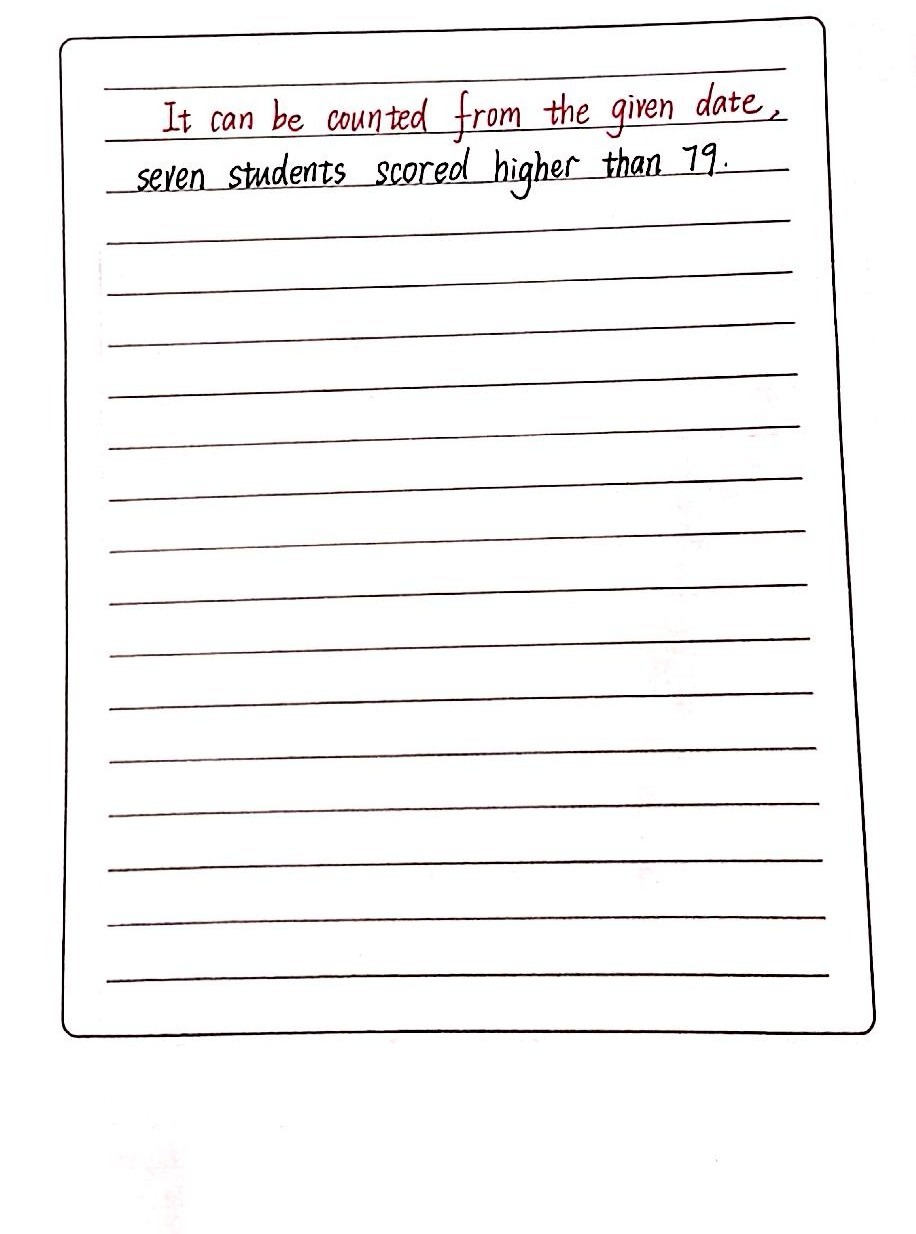 It can be counted from the given date,
seven students scored higher than 79.